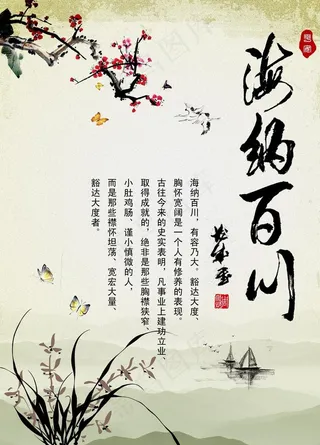 海纳百川
海纳百川，有容乃大。豁达大度、
胸怀宽阔是一个人有修养的表现。
古往今来的史实表明，凡事业上建功立业、
取得成就的，绝非是那些胸襟狭窄、
小肚鸡肠、谨小慎微的人，
而是那些襟怀坦荡、宽宏大量、
豁达大度者。